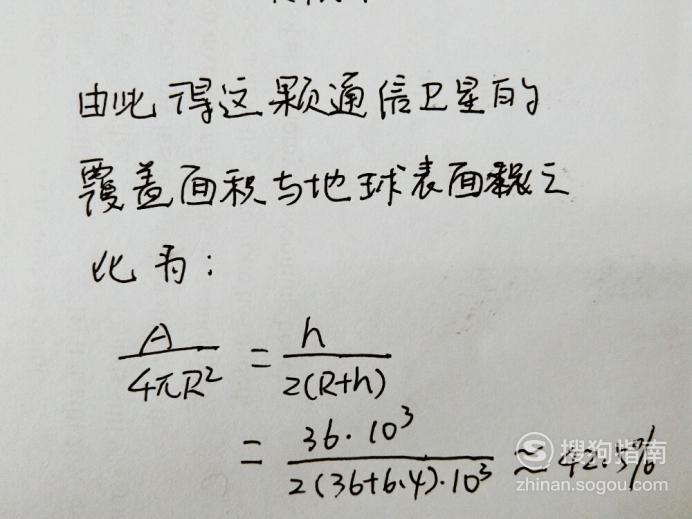 由此得这颗通信卫星的
覆盖面积与地球表面积之
比为：
A/(4πR²) = h/(2(R+h))
= 36·10³/(2(36+6.4)·10³) ≈ 42.5%
搜狗指南
zhinan.sogou.com